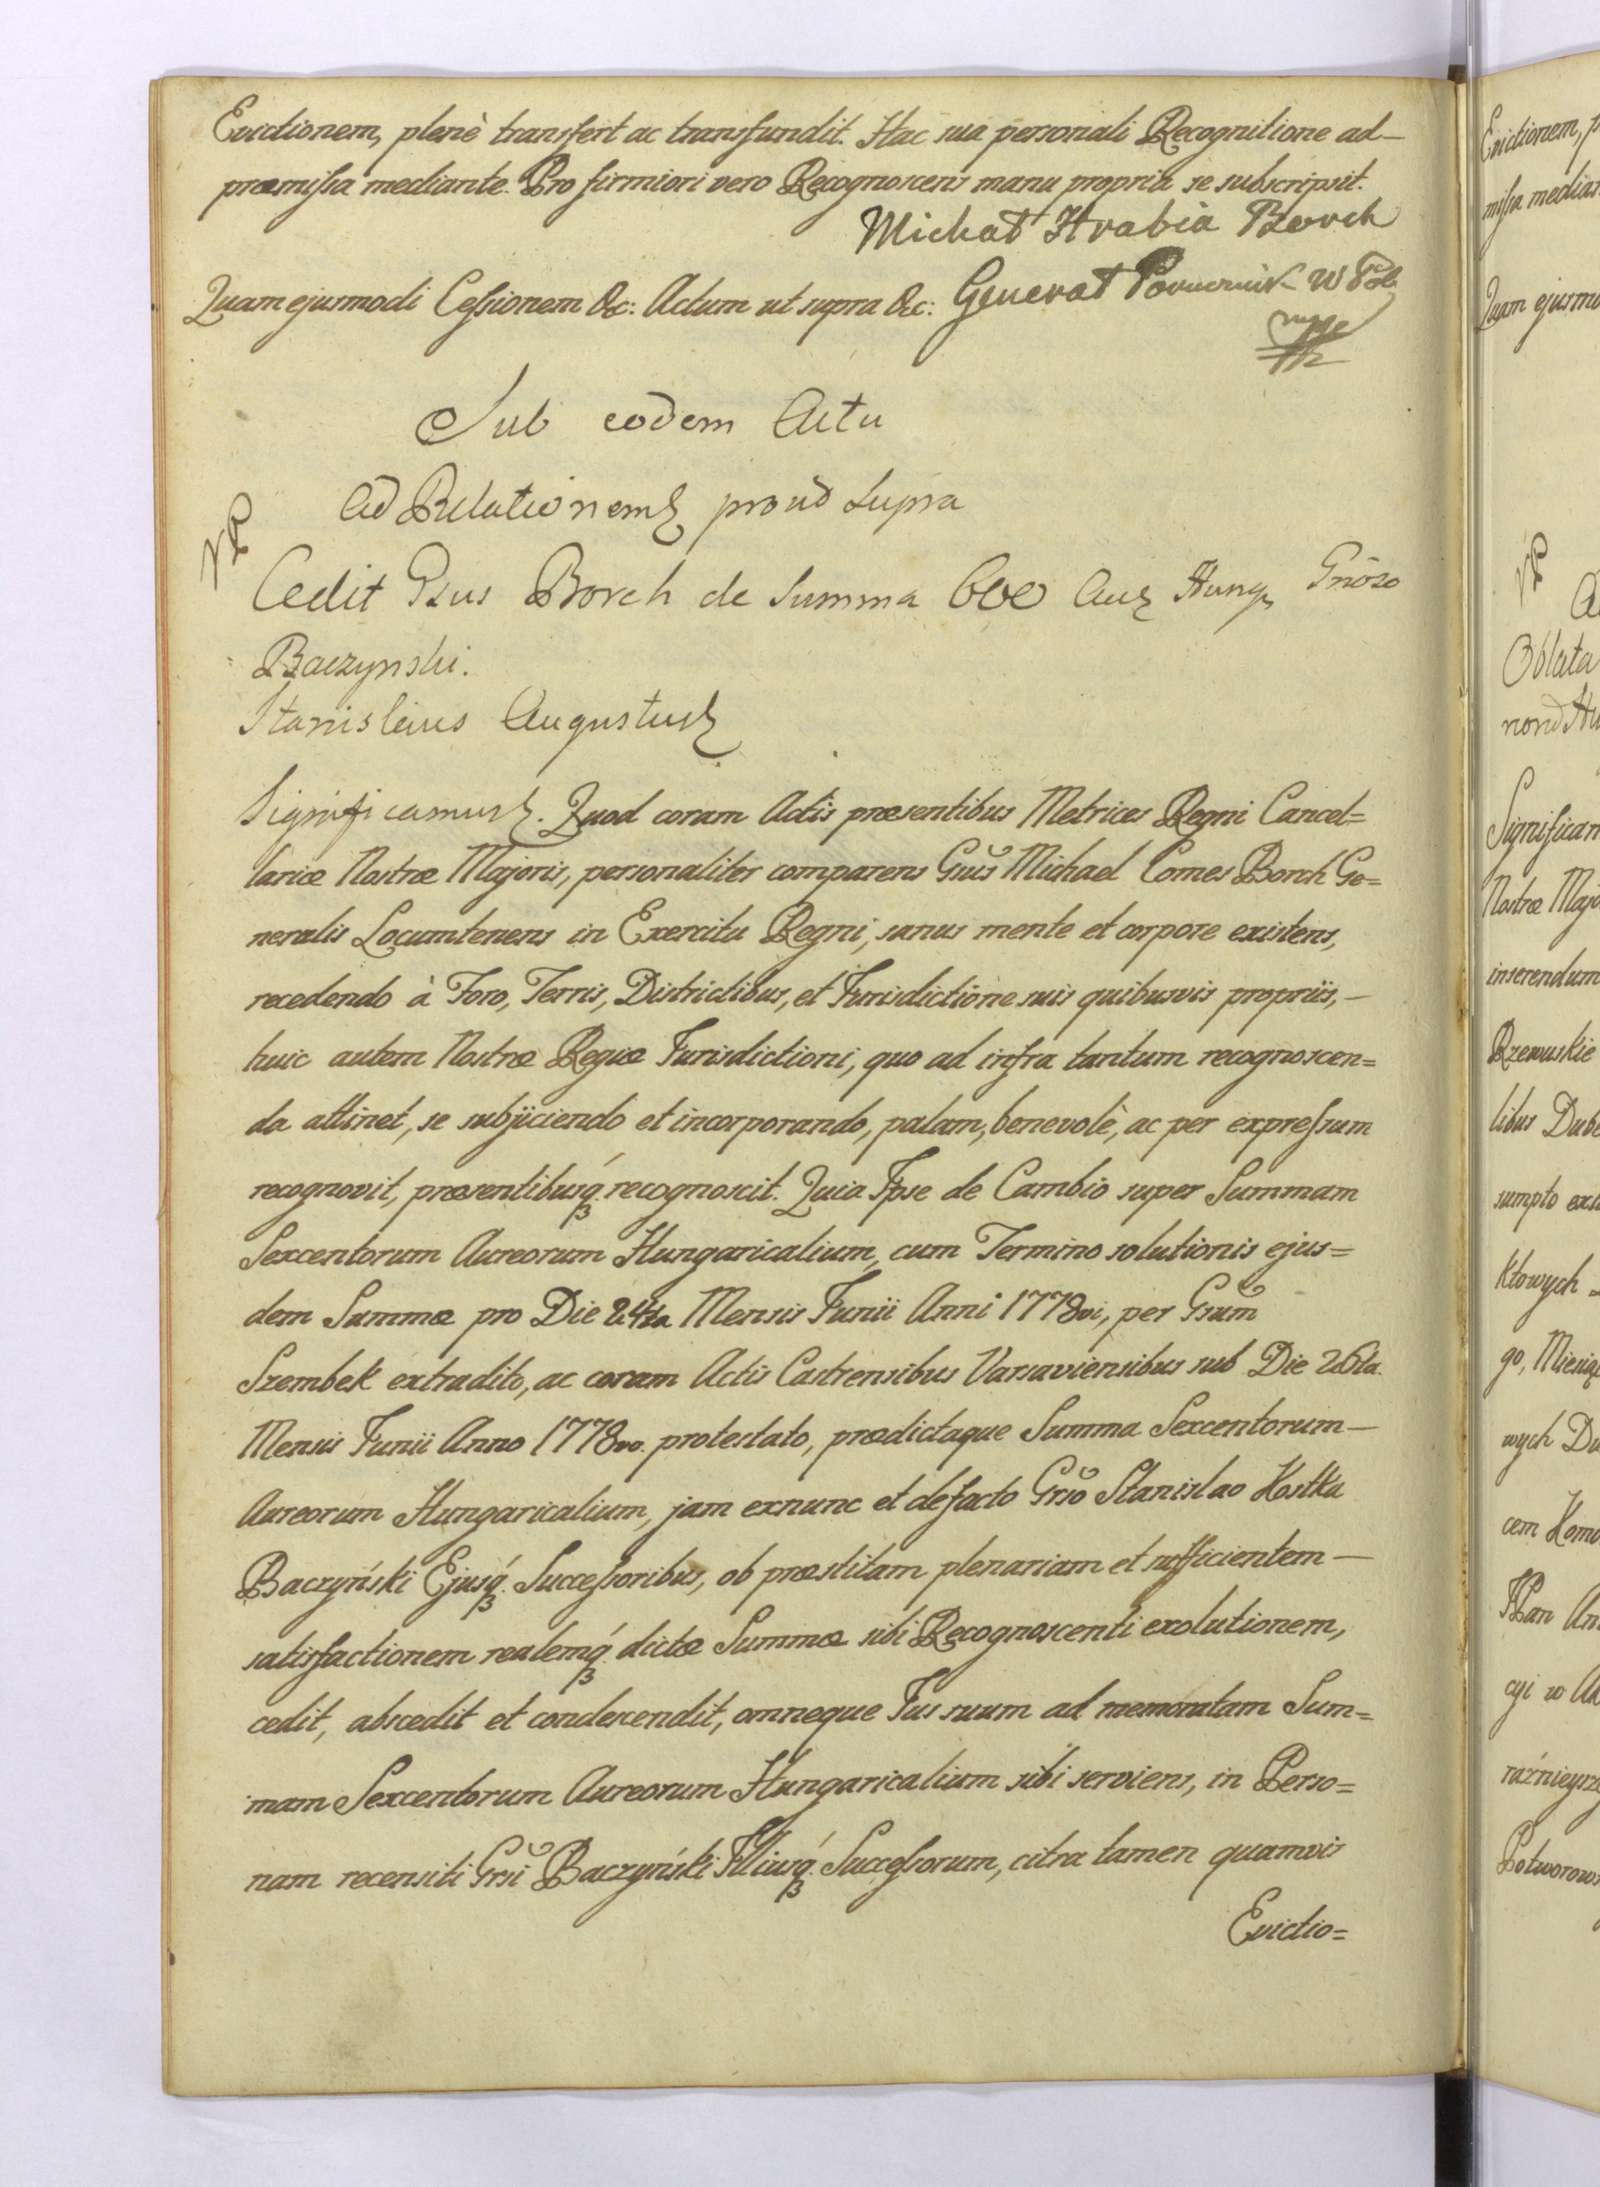 Evictionem, plenè transfert ac transfundit. Hac sua personali Recognitione ad-
præmissa mediante. Pro firmiori vero Recognoscens manu propria se subscripsit.
Michał Hrabia Borch
Quam ejusmodi Cessionem &c: Actum ut supra &c: Generał Porucznik W Pol
Sub eodem Actu
Ad Relationem prout supra
Cedit Gsus Borch de Summa 600 Aur Hung Gnoso
Baczynski.
Stanislaus Augustus
Significamus. Quod coram Actis præsentibus Metrices Regni Cancel=
lariæ Nostræ Majoris, personaliter comparens Gsus Michael Comes Borch Ge=
neralis Locumtenens in Exercitu Regni, sanus mente et corpore existens,
recedendo à Foro, Terris, Districtibus, et Jurisdictione suis quibusvis propriis,-
huic autem Nostræ Regiæ Jurisdictioni, quo ad infra tantum recognoscen=
da attinet, se subjiciendo et incorporando, palam, benevolè, ac per expressum
recognovit, præsentibusq́ recognoscit. Quia Ipse de Cambio super Summam
Sexcentorum Aureorum Hungaricalium, cum Termino solutionis ejus=
dem Summæ pro Die 24ta Mensis Junii Anni 1778vi, per Gsum
Szembek extradito, ac coram Actis Castrensibus Varsaviensibus sub Die 26ta.
Mensis Junii Anno 1778vo. protestato, prædictaque Summa Sexcentorum-
Aureorum Hungaricalium, jam exnunc et defacto Grso Stanislao Kostka
Baczyński Ejusq́. Successoribus, ob præstitam plenariam et sufficientem-
satisfactionem realemq́. dictæ Summæ sibi Recognoscenti exolutionem,
cedit, abscedit et condescendit, omneque Jus suum ad memoratam Sum=
mam Sexcentorum Aureorum Hungaricalium sibi serviens, in Perso=
nam recensiti Grsi Baczyński Illiusq́. Successorum, citra tamen quamvis
Evictio=
Evictionem, p
missa median
Quam ejusmo
Oblata
Significam
Nostræ Majo
inserendum
Rzewuskie
libus Dube
sumpto
kłowych
go,
wych Du
cem
Pan
cyi w
raźnieysze
Potworows